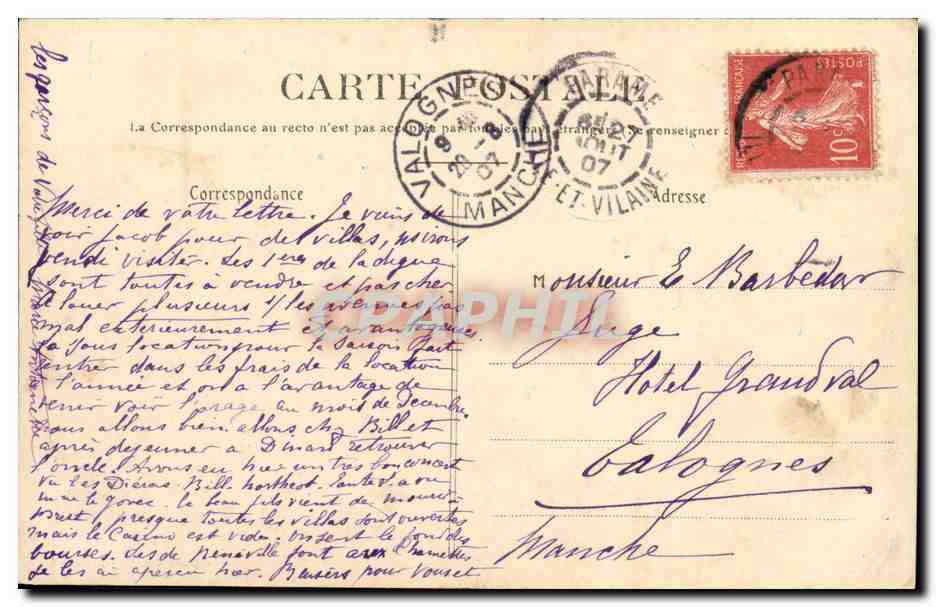 CARTE POSTALE
La Correspondance au recto n'est pas acceptée par tous les pays étrangers. Se renseigner
Correspondance
Adresse
VALOGNES
9 28 -8 07
MANCHE
PARAMÉ
27 AOUT 07
ILLE-ET-VILAINE
FRANÇAISE
POSTES
10c
PARA
Merci de votre lettre. Je viens de
voir Jacob pour des villas, irons
visiter. Les 1ères de la digue
sont toutes à vendre et pas cher
à louer plusieurs s/ les avenues pas
mal exterieurement et avantageuses
la sous location pour la saison fait
entrer dans les frais de la location
à l'année et on a l'avantage de
venir voir la plage au mois de Decembre
nous allons bien. allons chez Bill et
après dejeuner à Dinard retrouver
l'oncle. Avons eu hier un tres bon concert
vu les Bill. tante
le beau fils vient de mourir
presque toutes les villas sont ouvertes
mais le Casino est vide. le fond des
bourses. de font avec
je les ai aperçu hier. Baisers pour vous et
les garçons de
CPAPHIL
Monsieur E Barbedar
Juge
Hotel Grandval
Valognes
Manche